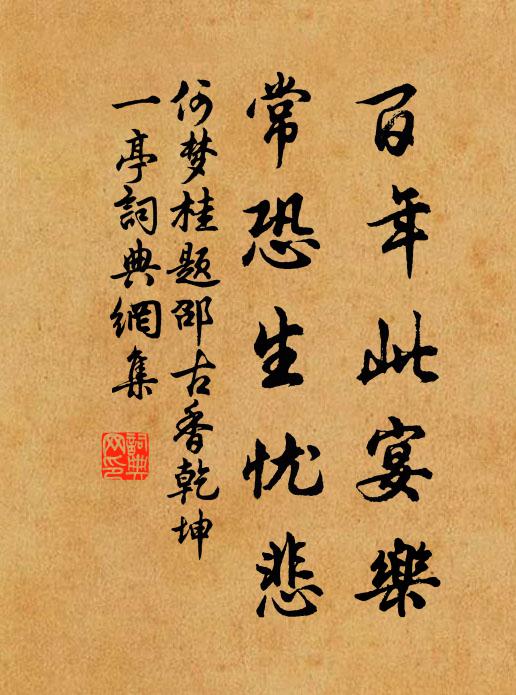 百年此宴樂
常恐生忧悲
何梦桂题邵古香乾坤
一亭詞典網集
詞典网印